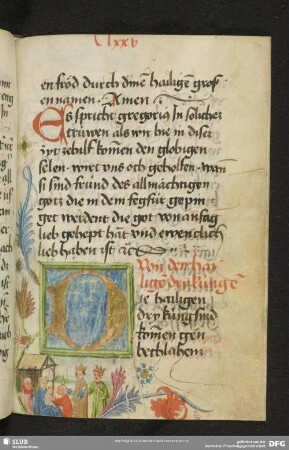 lxxv
en fröd durch dinē hailigē gross
en namen · Amen ·
Es spricht gregoriꝰ In solicher
truwen als wir hie in diser
zyt ze hilf komen den glöbigen
selen · wirt vns och geholfen · wañ
si sind fründ des allmächtigen
gotz die in dem fegfür gepin
get werdent die got von anfag
lieb gehept hät vnd ewenclich
lieb haben ist
Von den hai
ligē dry küngē
Die hailigen
dry küng sind
komen gen
bethlahem
SLUB
DFG